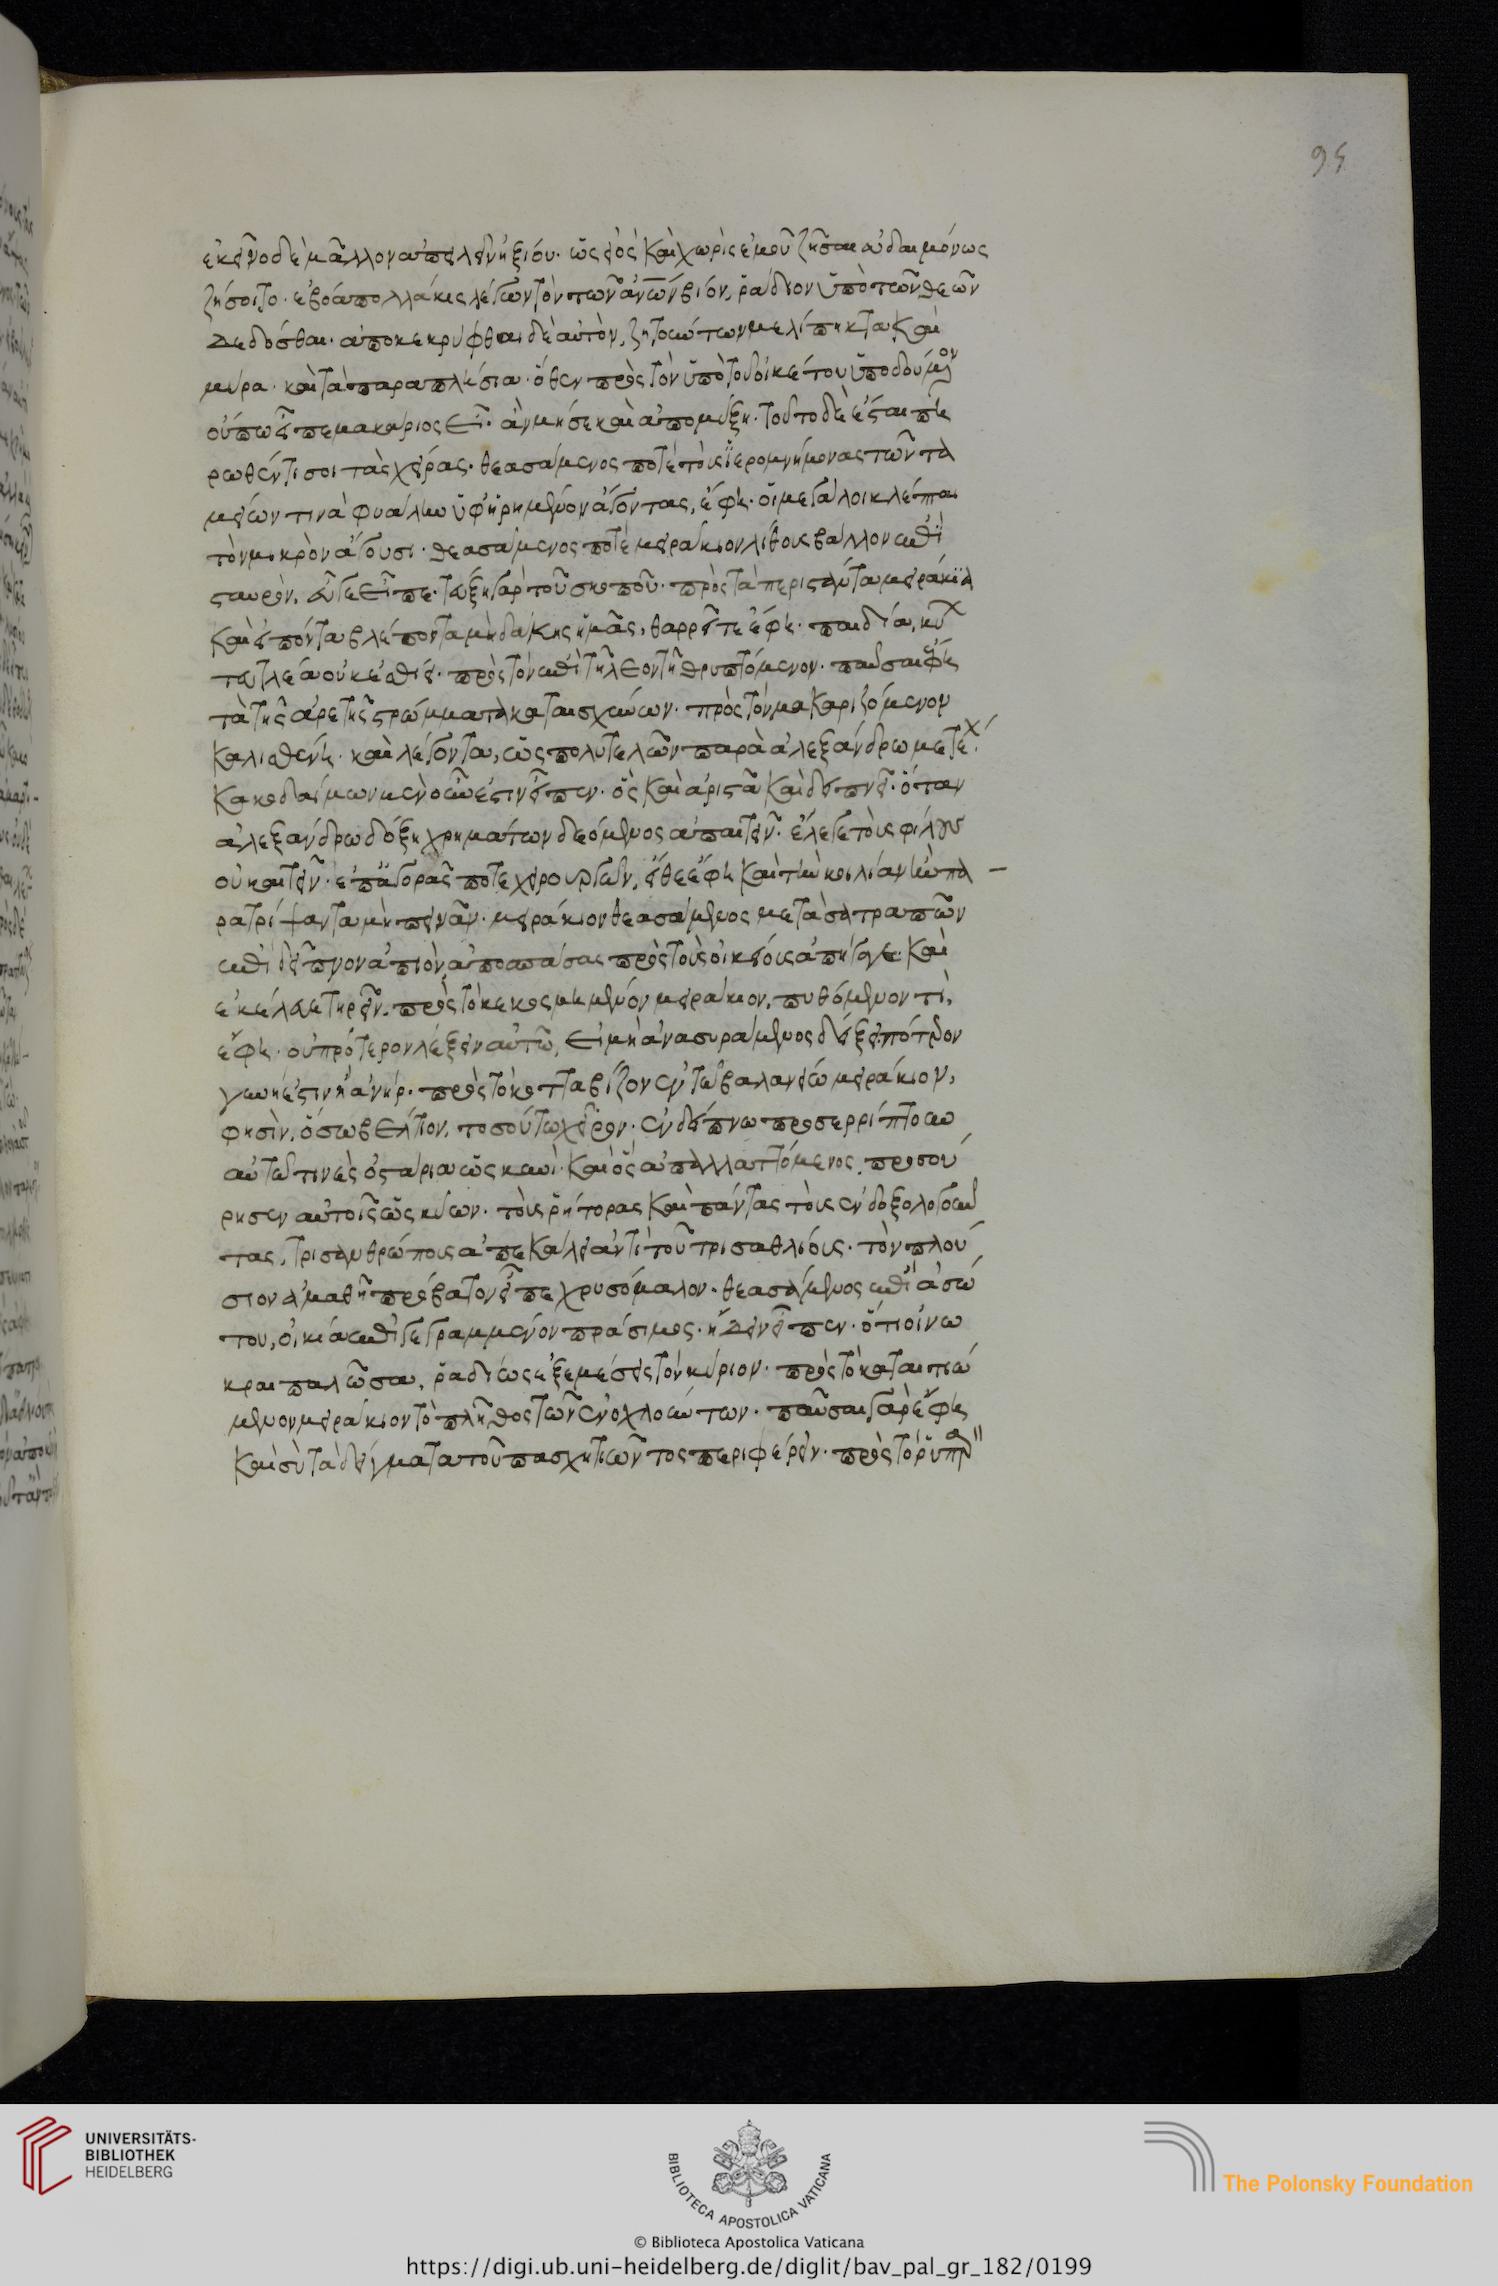 95
ἐκεῖνο δὲ μᾶλλον ἀπειλεῖν ἠξίου. ὡς εἰ καὶ χωρὶς ἐμοῦ ζῆσαι εὐδαιμόνως
ζήσοιτο. ἐβόα πολλάκις λέγων τὸν τῶν ἀν̅ω̅ν βίον, ῥάδιον ὑπὸ τῶν θεῶν
δεδόσθαι. ἀποκεκρύφθαι δὲ αὐτὸν, ζητούντων μελίπηκτα καὶ
μύρα. καὶ τὰ παραπλήσια. ὅθεν πρὸς τὸν ὑπὸ τοῦ οἰκέτου ὑποδούμενον
οὔπω εἶπε μακάριος εἶ. ἂν μή σε καὶ ἀπομύξῃ. τοῦτο δὲ ἔσται πη
ρωθέντι σοι τὰς χεῖρας. θεασάμενος ποτὲ τοὺς ἱερομνήμονας τῶν τα
μειῶν τινὰ φυάλην ὑφῃρημένον ἄγοντας, ἔφη. οἱ μεγάλοι κλέπται
τὸν μικρὸν ἄγουσι. θεασάμενος ποτὲ μειράκιον λίθους βάλλον ἐπὶ
σταυρὸν, εὖγε εἶπε. τεύξῃ γὰρ τοῦ σκοποῦ. πρὸς τὰ περιστάντα μειράκια
καὶ εἰπόντα βλέπον τα μὴ δάκῃς ἡμᾶς, θαρρεῖτε ἔφη. παιδία, κύ
τευτλέα οὐκ ἐσθίει. πρὸς τὸν ἐπὶ τῇ λεοντῇ θρυπτόμενον. παῦσαι ἔφη
τὰ τῆς ἀρετῆς στρώμματα καταισχύνων. πρὸς τὸν μακαριζόμενον
καλισθένη. καὶ λέγοντα, ὡς πολυτελῶν παρὰ ἀλεξάνδρω μετέχ
κακοδαίμων μὲν οὖν ἐστὶν εἶπεν. ὃς καὶ ἀριστᾶ καὶ δειπνεῖ. ὅταν
ἀλεξάνδρω δόξῃ χρημάτων δεόμενος ἀπαιτεῖν. ἔλεγε τοὺς φίλους
οὐκ αἰτεῖν. ἐπ ἀγορᾶς ποτε χειρουργῶν, εἴθε ἔφη καὶ τὴν κοιλίαν ἦν πα
ρατρίψαντα μὴ πεινᾶν. μειράκιον θεασάμενος μετὰ σατραπῶν
ἐπὶ δεῖπνον ἀπιὸν, ἀποσπάσας πρὸς τοὺς οἰκείους ἀπήγαγε καὶ
ἐκέλευε τηρεῖν. πρὸς τὸ κεκοσμημένον μειράκιον, πυθόμενόν τι,
ἔφη. οὐ πρότερον λέξειν αὐτῶ, εἰ μὴ ἀνασυράμενος δείξει πότερον
γυνή ἐστιν ἢ ἀνήρ. πρὸς τὸ κοτταβίζον ἐν τῶ βαλανείω μειράκιον,
φησὶν, ὅσω βέλτιον, τοσούτω χεῖρον. ἐν δείπνω προσερρίπτουν
αὐτῶ τινὲς ὀστάρια ὡς κυνὶ. καὶ ὃς ἀπαλλαττόμενος, προσού
ρησεν αὐτοῖς ὡς κύων. τοὺς ῥήτορας καὶ πάντας τοὺς ἐνδοξολογοῦν
τας, τρισανθρώπους ἀπεκάλει ἀντὶ τοῦ τρισαθλίους. τὸν πλού
σιον ἀμαθῆ πρόβατον εἶπε χρυσόμαλον. θεασάμενος ἐπὶ ἀσώ
του, οἰκία ἐπιγεγραμμένον πράσιμος. ᾔδειν εἶπεν. ὅτι οἵνω
κραιπαλῶσα, ῥαδίως ἐξεμέσεις τὸν κύριον. πρὸς τὸ καταιτιώ
μενον μειράκιον τὸ πλῆθος τῶν ἐνοχλούντων. παῦσαι γὰρ ἔφη
καὶ σὺ τὰ δείγματα τοῦ πασχητιῶντος περιφέρειν. πρὸς τὸ ῥυπα
UNIVERSITÄTS-
BIBLIOTHEK
HEIDELBERG
BIBLIOTECA APOSTOLICA VATICANA
The Polonsky Foundation
© Biblioteca Apostolica Vaticana
https://digi.ub.uni-heidelberg.de/diglit/bav_pal_gr_182/0199